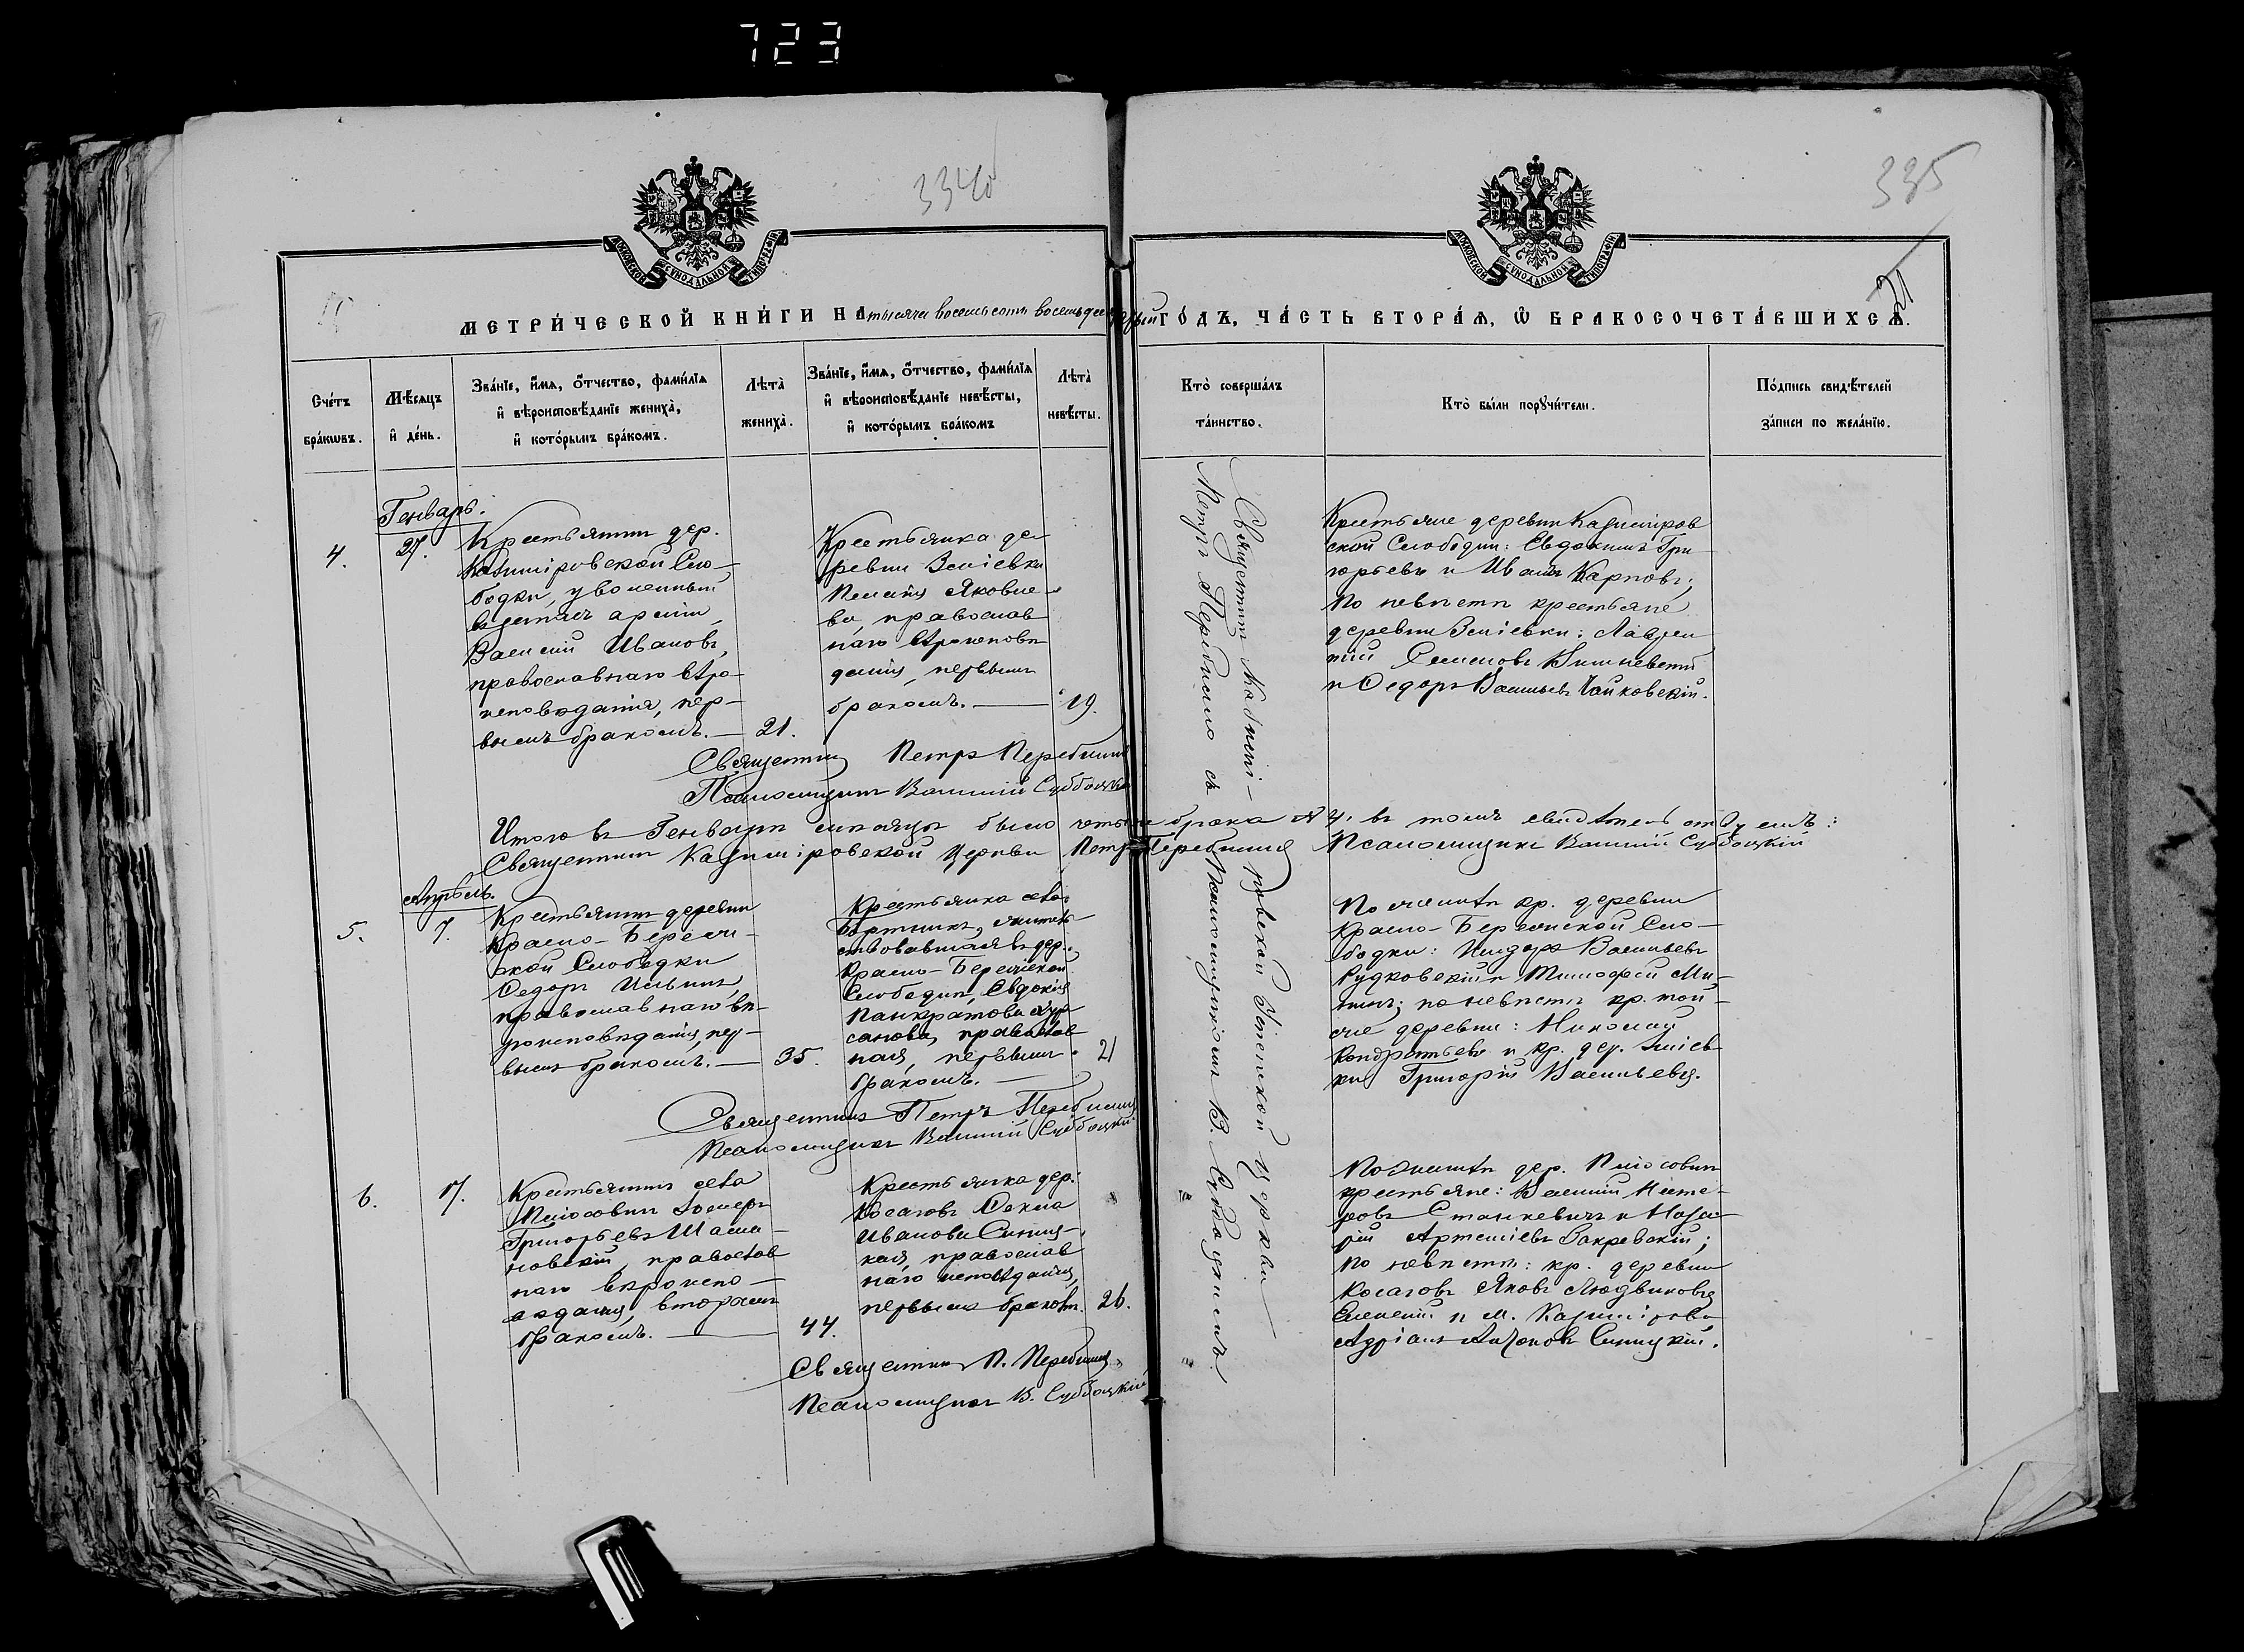 723
334об
335
МОСКОВСКОЙ СѴНОДАЛЬНОЙ ТИПОГРАФІИ.
МОСКОВСКОЙ СѴНОДАЛЬНОЙ ТИПОГРАФІИ.
МЕТРИ́ЧЕСКОЙ КНИ́ГИ НА тысяча восемьсотъ восемьдес ГО́ДЪ, ЧА́СТЬ ВТОРА́Ѧ, Ѿ БРАКОСОЧЕТА́ВШИХСѦ.
Сче́тъ
бра́кѡвъ.
Мѣ́сяцъ
и҆ де́нь.
Зва́нїе, и҆́мѧ, ѻ҆́тчество, фами́лїѧ
и҆ вѣроисповѣ́данїе жениха̀,
и҆ кото́рымъ бра́комъ.
Лѣта̀
жениха̀.
Зва́нїе, и҆́мѧ, ѻ҆́тчество, фами́лїѧ
и҆ вѣроисповѣ́данїе невѣ́сты,
и҆ кото́рымъ бра́комъ
Лѣта̀
невѣ́сты.
Кто̀ соверша́лъ
та́инство.
Кто̀ бы́ли порꙋчи́тели.
По́дпись свидѣ́телей
за́писи по жела́нїю.
Генварь.
4.
27.
Крестьянинъ дер.
Казимировской Сло-
бодки, уволенный
въ арміи,
Василій Ивановъ,
православнаго вѣро-
исповѣданія, пер-
вымъ бракомъ. — 21.
Крестьянка де-
ревни Зміевки
Пелагія Яковле-
ва, православ
наго вѣроисповѣ
данія, первымъ
бракомъ. — 19.
Крестьяне деревни Казиміров
ской Слободки: Евдокимъ Гри-
горьевъ и Иванъ Карповъ;
по невѣстѣ крестьяне
деревни Зміевки: Лаврен
тій Семеновъ Вишневскій
и Ѳедоръ Васильевъ Чайковскій.
Священникъ Петръ
Псаломщикъ Василій Субботскій
Итого въ Генварѣ мѣсяцѣ было четыре брака 4, въ томъ свидѣтельствуемъ:
Священникъ Казиміровской Церкви Петръ Псаломщикъ Василій Субботскій
Священникъ Казимі-
ровской Успенской церкви
Петръ съ
Псаломщикомъ В. Субботскимъ.
Апрѣль.
5.
7.
Крестьянинъ деревни
Красно-Бережс-
кой Слободки
Ѳедоръ Ильинъ,
православнаго вѣ-
роисповѣданія, пер-
вымъ бракомъ. — 35.
Крестьянка села
Бортникъ, жительс-
ствовавшая въ дер.
Красно-Бережской
Слободки, Евдокія
Панкратова
православ
ная, первымъ
бракомъ. —
21
По женихѣ кр. деревни
Красно-Бережской Сло-
бодки: Исидоръ Васильевъ
Рудковскій и Тимофей Ми-
нинъ; по невѣстѣ кр. той-
же деревни: Николай
Кондратьевъ и кр. дер. Зміев
ки Григорій Васильевъ.
Священникъ Петръ
Псаломщикъ Василій Субботскій
6.
17.
Крестьянинъ села
Григорьевъ Шама-
новскій, православ
наго вѣроиспо-
вѣданія, вторымъ
бракомъ. —
44.
Крестьянка дер.
Косаговъ Ѳекла
Иванова Синиц-
кая, православ
наго исповѣданія,
первымъ бракомъ. 26.
По женихѣ дер.
крестьяне: Василій Несте-
ровъ Станкевичъ и Наза-
рій Артеміевъ Закревскій;
по невѣстѣ: кр. деревни
Косаговъ Яковъ Людвиковъ
и м. Казимірова
Адріанъ Антоновъ Синицкій.
Священникъ П.
Псаломщикъ В. Субботскій